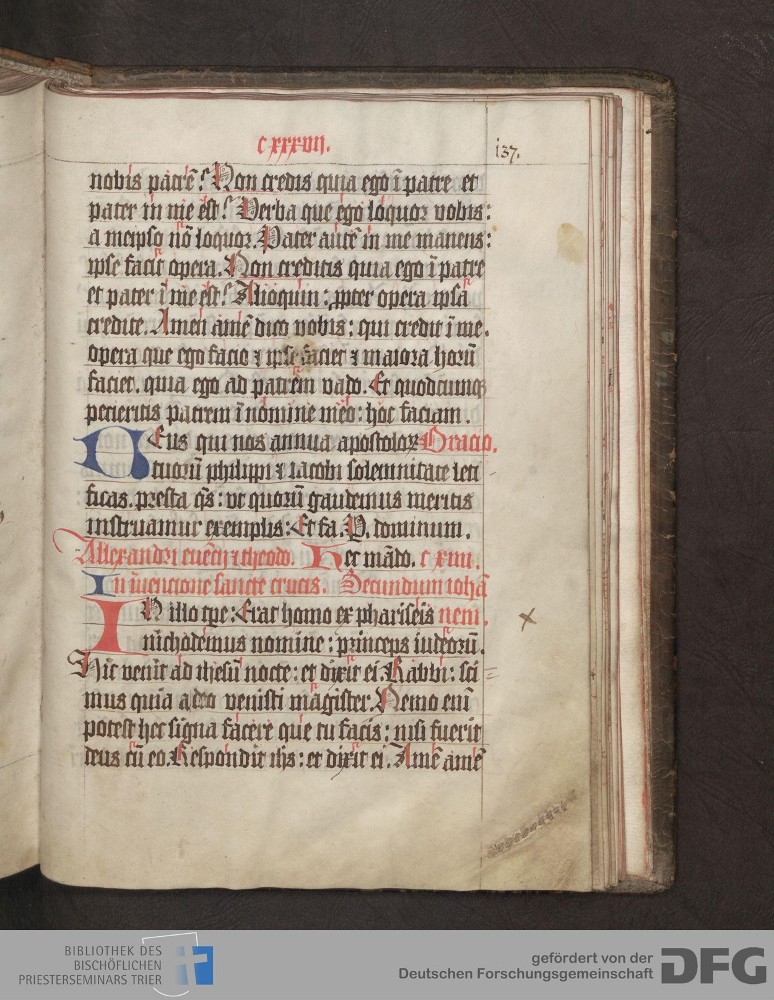 cxxxvii.
137.
nobis patrē? Non credis quia ego ī patre et
pater in me est? Verba que ego loquor vobis:
a meipso nō loquor. Pater autē in me manens:
ipse facit opera. Non creditis quia ego ī patre
et pater ī me est? Alioquin: ꝓpter opera ipsa
credite. Amen amē dico vobis: qui credit ī me.
opera que ego facio ⁊ ipse faciet ⁊ maiora horū
faciet. quia ego ad patrem vado. Et quodcunqꝫ
petieritis patrem ī nomine meo: hoc faciam.
Deus qui nos annua apostoloꝝ Oracio.
tuorū philippi ⁊ iacobi solemnitate leti
ficas. presta q̄s: vt quorū gaudemus meritis
instruamur exemplis: Et fa. P. dominum.
Allexandri euēcij ⁊ theodo. Het mādo. c xiiii.
In īuencione sancte crucis. Secundum iohā
IN illo tꝑe: Erat homo ex phariseis nem.
nichodemus nomine: princeps iudeorū.
Hic venit ad ihesū nocte: et dixit ei. Rabbi: sci
mus quia a deo venisti magister. Nemo eni
potest hec signa facere que tu facis: nisi fuerit
deus cū eo. Respondit ihs: et dixit ei. Amē amē
BIBLIOTHEK DES
BISCHÖFLICHEN
PRIESTERSEMINARS TRIER
gefördert von der
Deutschen Forschungsgemeinschaft DFG